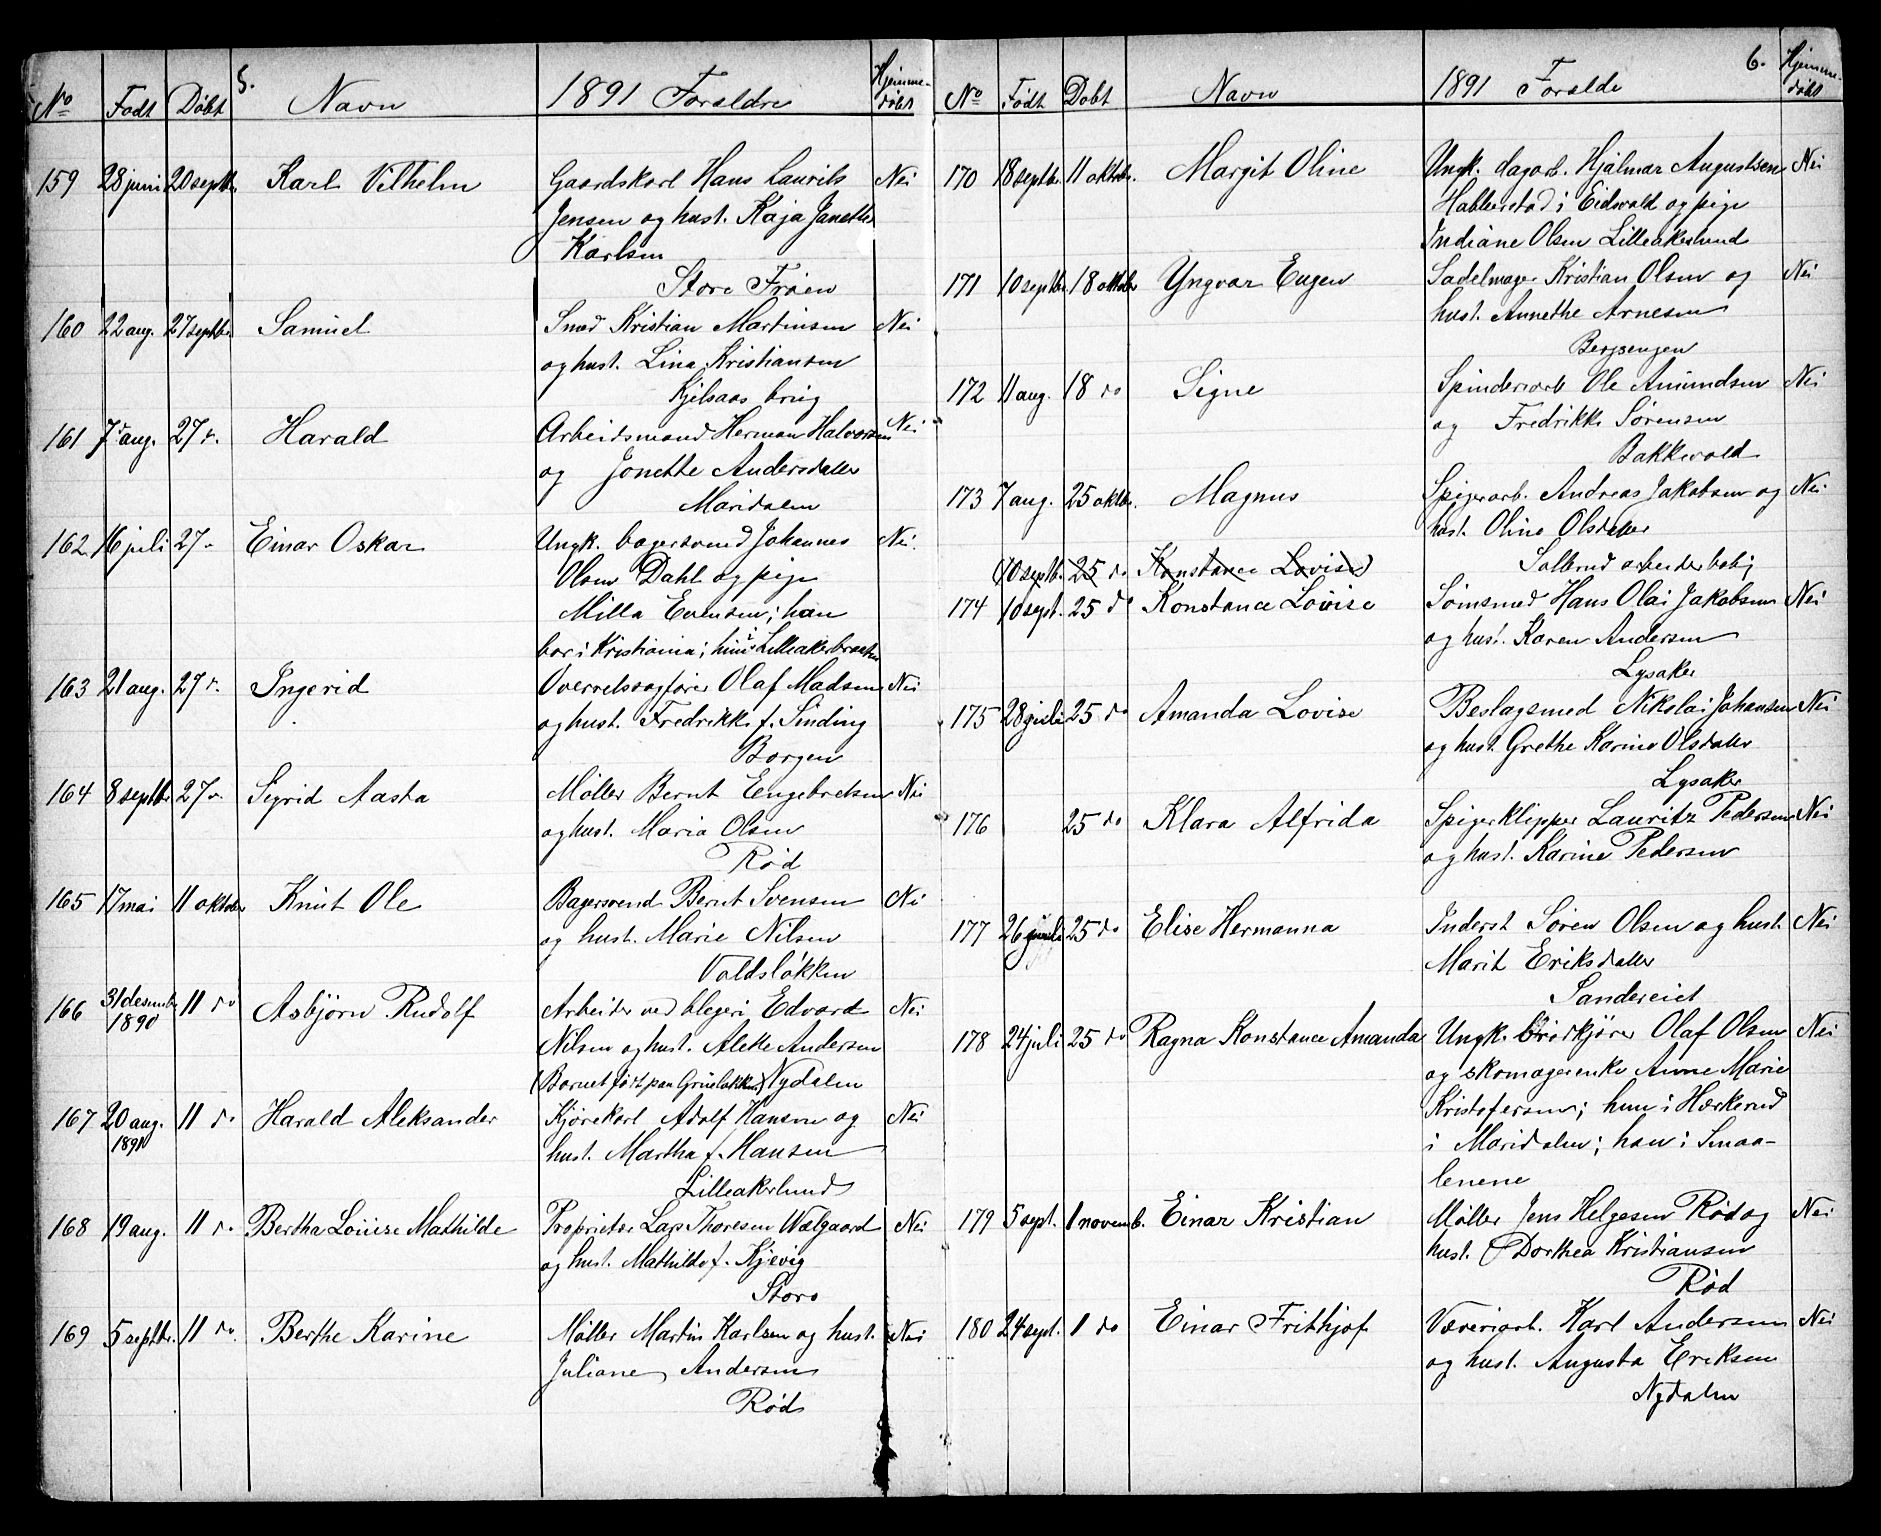 5.
No Født Døbt Navn 1891 Forældre Hjemme-
døbt
159 28 juni 20 septbr. Karl Vilhelm Gaardskarl Hans Laurits Nei
Jensen og hust. Kaja Janette
Karlsen
Store Frøen
160 22 aug. 27 septbr. Samuel Smed Kristian Martinsen Nei
og hust. Lina Kristiansen
Kjelsaas brug
161 7 aug. 27 d. Harald Arbeidsmand Herman Halvorsen Nei
og Jonette Andersdatter
Maridalen
162 16 juli 27 Einar Oskar Ungk. bagersvend Johannes Nei
Olsen Dahl og pige
Milla Evensen; han
bor i Kristiania; hun i Lilleakerbraaten
163 21 aug. 27 d. Ingerid Overretssagfører Olaf Madsen Nei
og hust. Fredrikke f. Sinding
Borgen
164 8 septbr. 27 Sigrid Aasta Møller Bernt Eengebretsen Nei
og hust. Maria Olsen
Rød
165 17 mai 11 oktober Knut Ole Bagersvend Bernt Svensen Nei
og hust. Marie Nilsen
Voldsløkken
166 31 desembr. 11 do Asbjørn Rudolf Arbeider ved blegeri Edvard Nei
1890
Nilsen og hust. Alette Andersen
(Barnet født paa Grünløkken) Nydalen
167 20 aug. 11 do Harald Aleksander Kjørekarl Adolf Hansen og Nei
1891
hust. Martha f. Hansen
Lilleakerlund
168 19 aug. 11 do Bertha Louise Mathilde Proprietær Lars Thoresen Wælgaard Nei
og hust. Mathilde f. Kjevig
Storo
169 5 septbr. 11 do. Berthe Karine Møller Martin Karlsen og hust. Nei
Juliane Andersen
Rød
6.
No Født Døbt Navn 1891 Forælde Hjemme-
døbt
170 18 septb. 11 oktobr. Margit Oline Ungk. dagarb. Hjalmar Augustsen Nei
Habberstad i Eidsvold og pige
Indiane Olsen Lilleakerlund
171 10 septbr. 18 oktober Yngvar Eugen Sadelmager Kristian Olsen og Nei
hust. Annethe Arnesen
Bergsengen
172 11 aug. 18 do Signe Spinderiarb Ole Amundsen Nei
og Fredrikke Sørensen
Bakkevold
173 7 aug. 25 oktbr. Magnus Spigerarb. Andreas Jakobsen og Nei
hust. Oline Olsdatter
10 septb. 25 do Konstance Lovise Sollerud arbeiderbolig
174 10 sept. 25 do Konstance Lovise Sømsmed Hans Olai Jakobsen Nei
og hust. Karen Andersen
Lysaker
175 28 juli 25 do Amanda Lovise Beslagsmed Nikolai Johansen Nei
og hust. Grethe Karine Olsdatter
Lysaker
176 25 do Klara Alfrida Spigerklipper Lauritz Pedersen Nei
og hust. Karine Pedersen
177 26 juli 25 do Elise Hermanna Inderst Søren Olsen og hust. Nei
Marit Eriksdatter
Sandereiet
178 24 juli 25 do Ragna Konstance Amanda Ungk. brødkjører Olaf Olsen Nei
og skomagerenke Anne Marie
Kristofersen; hun i Hærkerud
i Maridalen; han i Smaa-
lenene
179 5 sept. 1 novemb. Einar Kristian Møller Jens Helgesen Rød og Nei
hust. Dorthea Kristiansen
Rød
180 24 sept. 1 do Einar Frithjof Væveriarb. Karl Andersen Nei
og hust. Augusta Eriksen
Nydalen